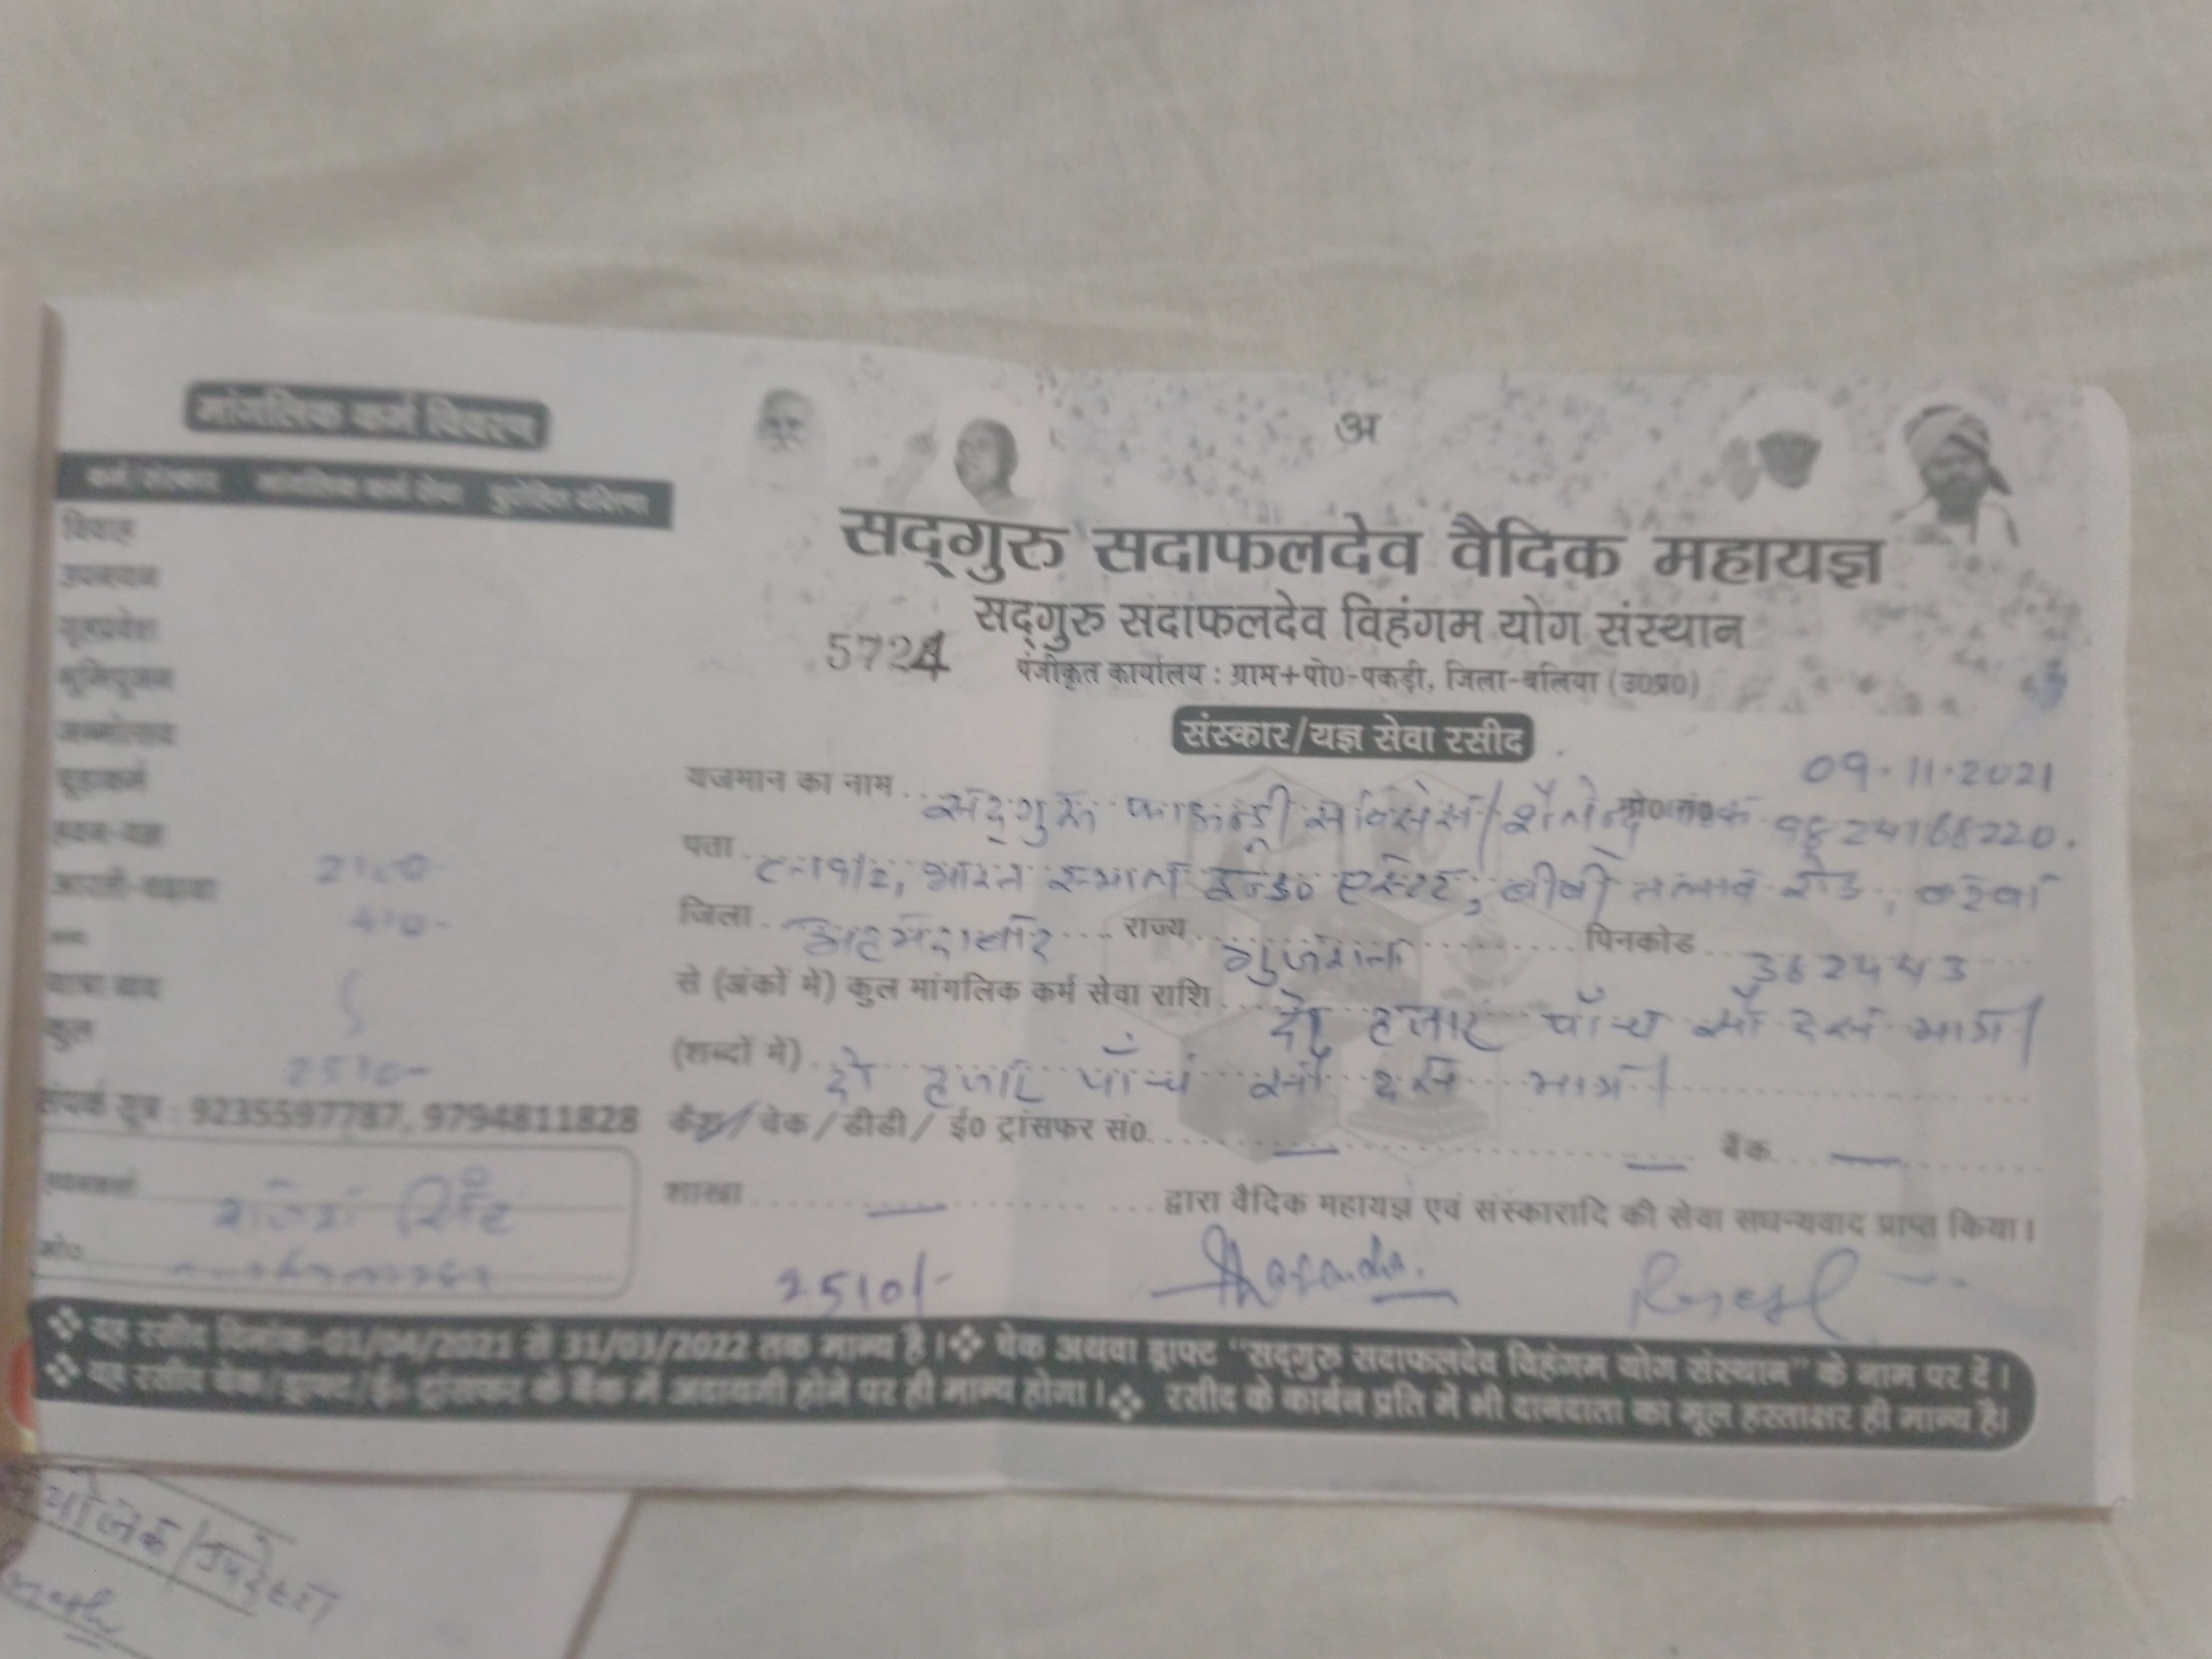 मांगलिक कर्म विवरण
कर्म संस्कार मांगलिक कर्म सेवा पुरोहित दक्षिणा
विवाह
उपनयन
गृहप्रवेश
भूमिपूजन
जन्मोत्सव
चूड़ाकर्म
हवन-यज्ञ
आरती-चढ़ावा 2100-
410-
यात्रा व्यय
कुल
2510-
संपर्क सूत्र : 9235597787, 9794811828
राजेश सिंह
मो०
अ
सद्गुरु सदाफलदेव वैदिक महायज्ञ
सद्गुरु सदाफलदेव विहंगम योग संस्थान
5724 पंजीकृत कार्यालय : ग्राम+पो0-पकड़ी, जिला-बलिया (उ0प्र0)
संस्कार/यज्ञ सेवा रसीद
09.11.2021
यजमान का नाम सद्गुरु फाऊन्ड्री सर्विसेस/ मो0नं0 9824168220.
पता भारत इन्ड० एस्टेट, बीबी तलाब रोड, वटवा
जिला अहमदाबाद राज्य गुजरात पिनकोड 382443
से (अंकों में) कुल मांगलिक कर्म सेवा राशि दो हजार पाँच सौ दस मात्र।
(शब्दों में) दो हजार पाँच सौ दस मात्र।
कैश/चेक/डीडी/ई0 ट्रांसफर सं0 — — बैंक —
शाखा — द्वारा वैदिक महायज्ञ एवं संस्कारादि की सेवा सधन्यवाद प्राप्त किया।
2510/-
❖ यह रसीद दिनांक-01/04/2021 से 31/03/2022 तक मान्य है।❖ चेक अथवा ड्राफ्ट "सद्गुरु सदाफलदेव विहंगम योग संस्थान" के नाम पर दें।
❖ यह रसीद चेक/ड्राफ्ट/ई० ट्रांसफर के बैंक में अदायगी होने पर ही मान्य होगा।❖ रसीद के कार्बन प्रति में भी दानदाता का मूल हस्ताक्षर ही मान्य है।